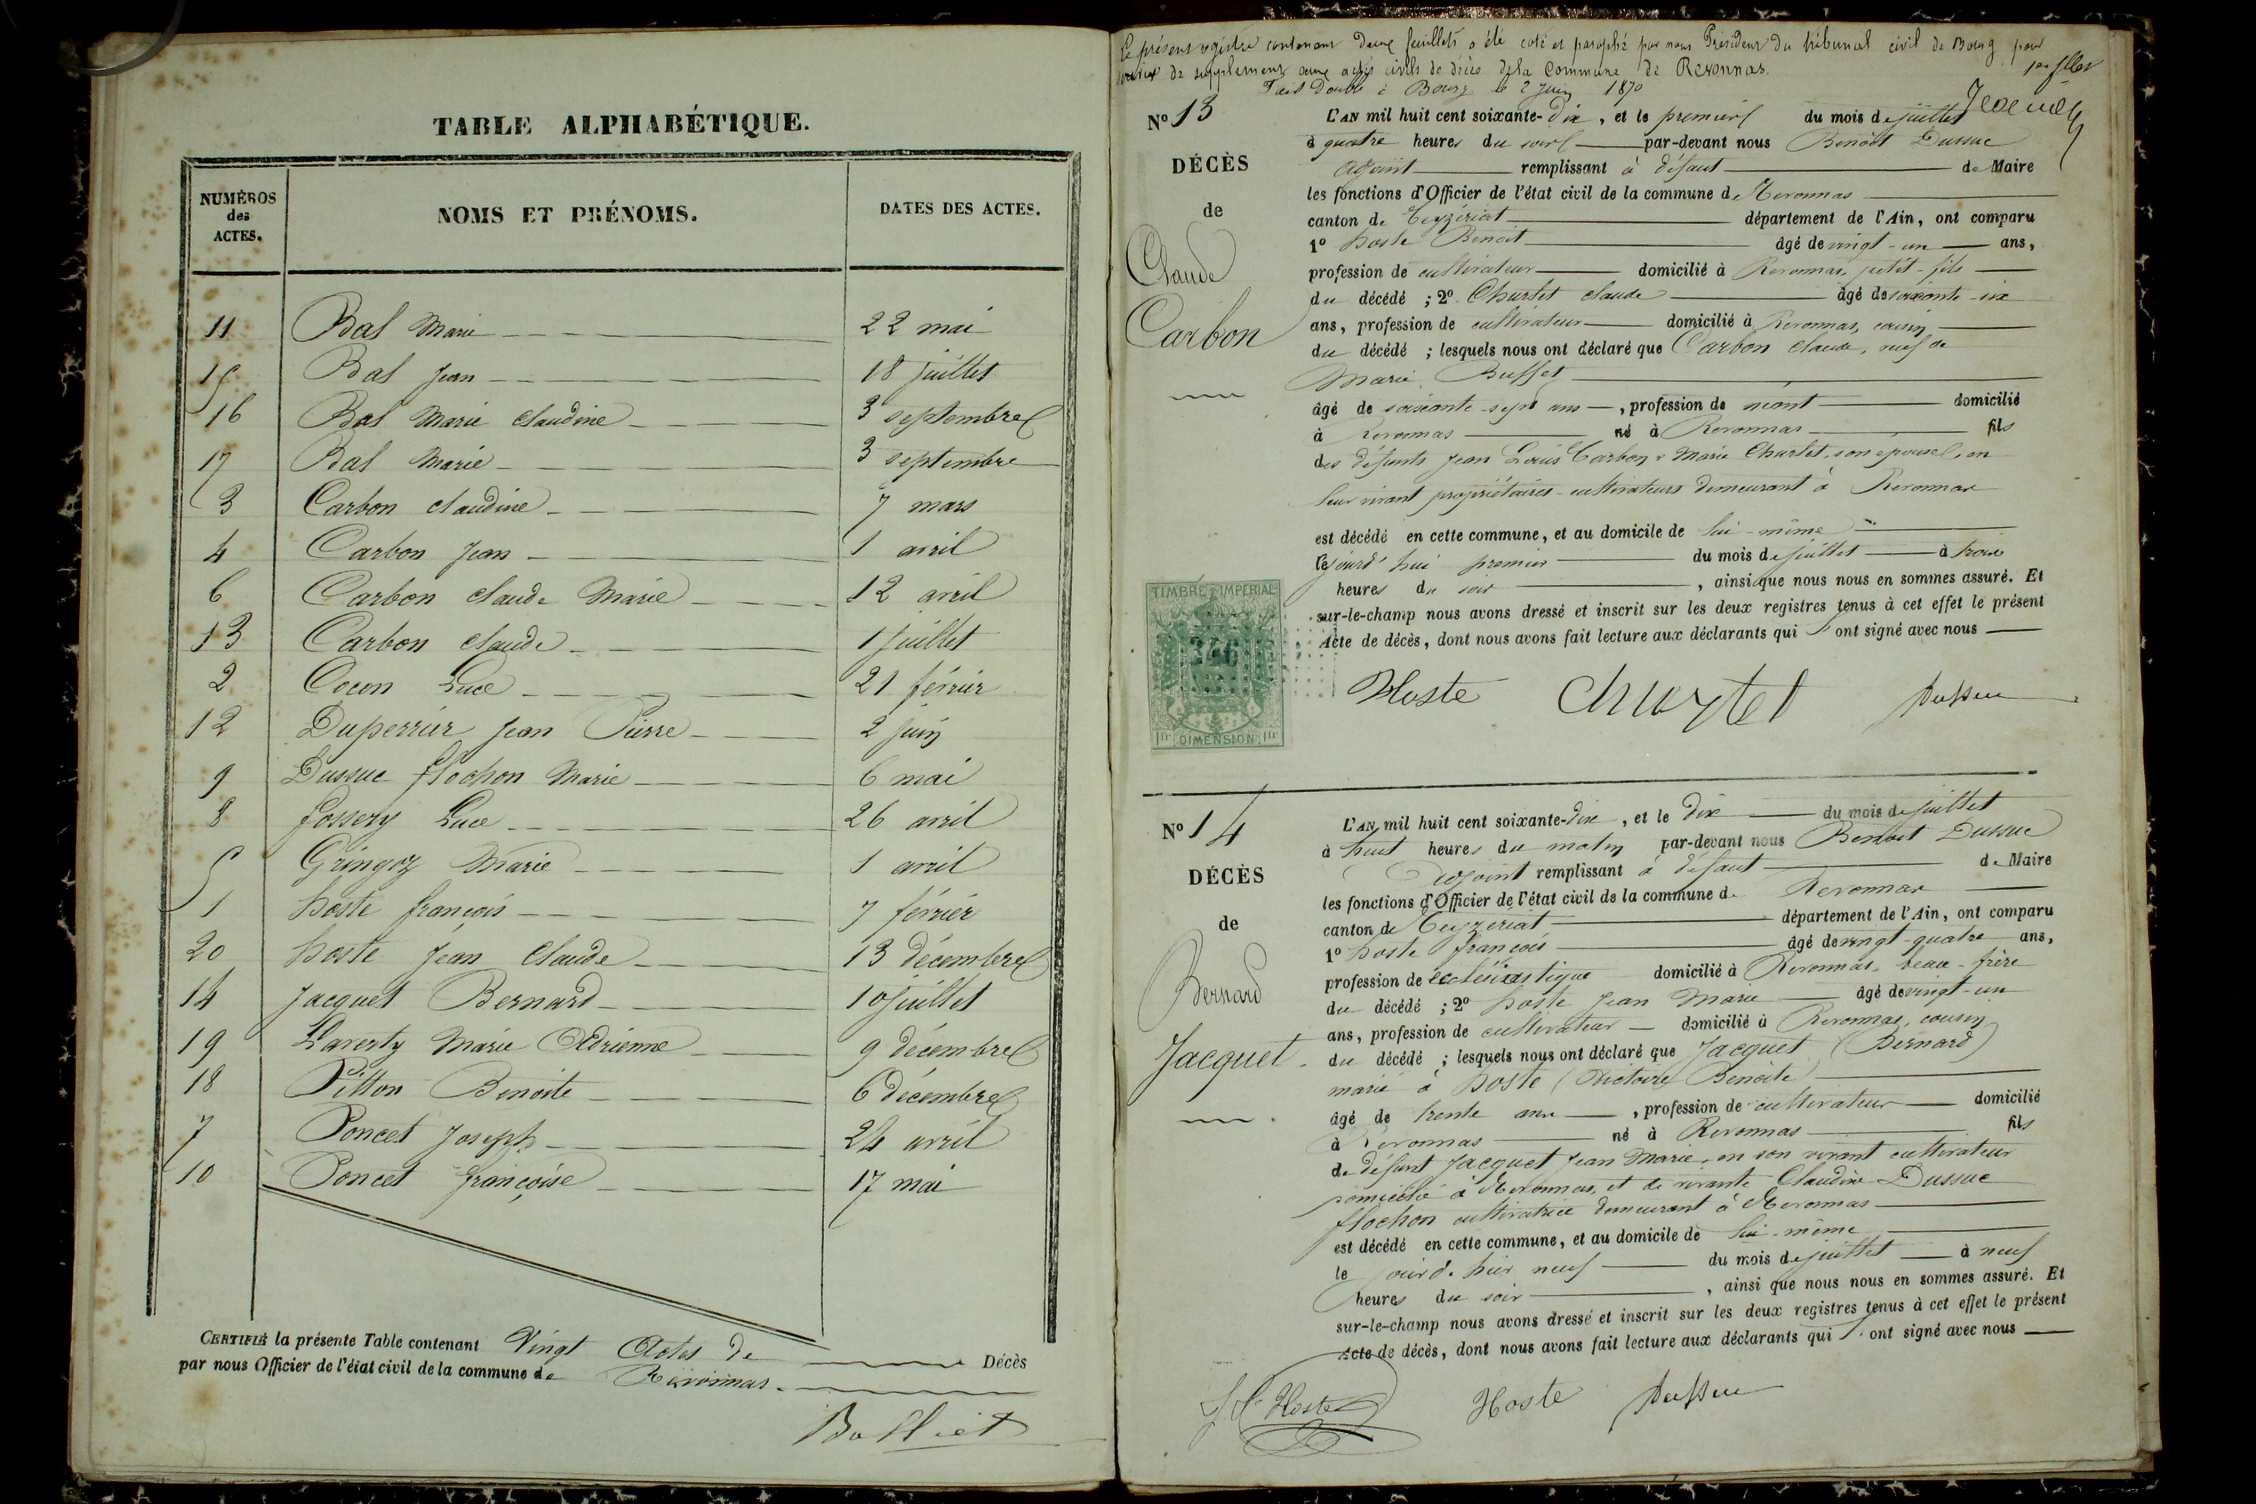 TABLE ALPHABÉTIQUE.
NUMÉROS des ACTES. NOMS ET PRÉNOMS. DATES DES ACTES.
11 Bal Marie 22 mai
15 Bal Jean 18 juillet
16 Bal Marie Claudine 3 septembre
17 Bal Marie 3 septembre
3 Carbon Claudine 7 mars
4 Carbon Jean 1 avril
6 Carbon Claude Marie 12 avril
13 Carbon Claude 1 juillet
2 Cocon Luce 21 février
12 Duperrier Jean Pierre 2 juin
9 Dussuc flochon Marie 6 mai
8 Luce 26 avril
5 Gringoz Marie 1 avril
1 hoste françois 7 février
20 hoste Jean Claude 13 décembre
14 Jacquet Bernard 10 juillet
19 Marie Adrienne 9 décembre
18 Pitton Benoite 6 décembre
7 Poncet Joseph 24 avril
10 Poncet françoise 17 mai
CERTIFIÉ la présente Table contenant Vingt Actes de Décès
par nous Officier de l'état civil de la commune de Revonnas.
Le présent registre contenant deux feuillets a été coté et paraphé par nous Président du tribunal civil de Bourg pour
servir de supplément aux actes civils de décès de la Commune de Revonnas.
Fait double à Bourg le 2 juin 1870
N° 13
DÉCÈS
de
Claude
Carbon
L'AN mil huit cent soixante-dix, et le premier du mois de juillet
à quatre heures du soir par-devant nous Benoît Dussuc
adjoint remplissant à défaut de Maire
les fonctions d'Officier de l'état civil de la commune de Revonnas
canton de Ceyzériat département de l'Ain, ont comparu
1° hoste Benoit âgé de vingt-un ans,
profession de cultivateur domicilié à Revonnas, petit-fils
du décédé ; 2° Churlet Claude âgé de soixante-six
ans, profession de cultivateur domicilié à Revonnas, cousin
du décédé ; lesquels nous ont déclaré que Carbon Claude, veuf de
Marie Buffet
âgé de soixante-sept ans, profession de néant domicilié
à Revonnas né à Revonnas fils
des défunts Jean Louis Carbon & Marie Churlet, son épouse, en
leur vivant propriétaires-cultivateurs demeurant à Revonnas
est décédé en cette commune, et au domicile de lui-même
le jourd'hui premier du mois de juillet à trois
heures du soir, ainsi que nous nous en sommes assuré. Et
sur-le-champ nous avons dressé et inscrit sur les deux registres tenus à cet effet le présent
Acte de décès, dont nous avons fait lecture aux déclarants qui ont signé avec nous
TIMBRE IMPERIAL
346
1fr DIMENSION 1fr
Hoste Dussuc
N° 14
DÉCÈS
de
Bernard
Jacquet
L'AN mil huit cent soixante-dix, et le dix du mois de juillet
à huit heures du matin par-devant nous Benoit Dussuc
adjoint remplissant à défaut de Maire
les fonctions d'Officier de l'état civil de la commune de Revonnas
canton de Ceyzériat département de l'Ain, ont comparu
1° hoste françois âgé de vingt-quatre ans,
profession de écclésiastique domicilié à Revonnas, beau-frère
du décédé ; 2° hoste Jean Marie âgé de vingt-un
ans, profession de cultivateur domicilié à Revonnas, cousin
du décédé ; lesquels nous ont déclaré que Jacquet (Bernard)
marié à hoste (Victoire Benoîte)
âgé de trente ans, profession de cultivateur domicilié
à Revonnas né à Revonnas fils
de défunt Jacquet Jean Marie, en son vivant cultivateur
domicilié à Revonnas, et de vivante Claudine Dussuc
flochon cultivatrice demeurant à Revonnas
est décédé en cette commune, et au domicile de lui-même
le jour d'hier neuf du mois de juillet à neuf
heures du soir, ainsi que nous nous en sommes assuré. Et
sur-le-champ nous avons dressé et inscrit sur les deux registres tenus à cet effet le présent
Acte de décès, dont nous avons fait lecture aux déclarants qui ont signé avec nous
Hoste Hoste Dussuc